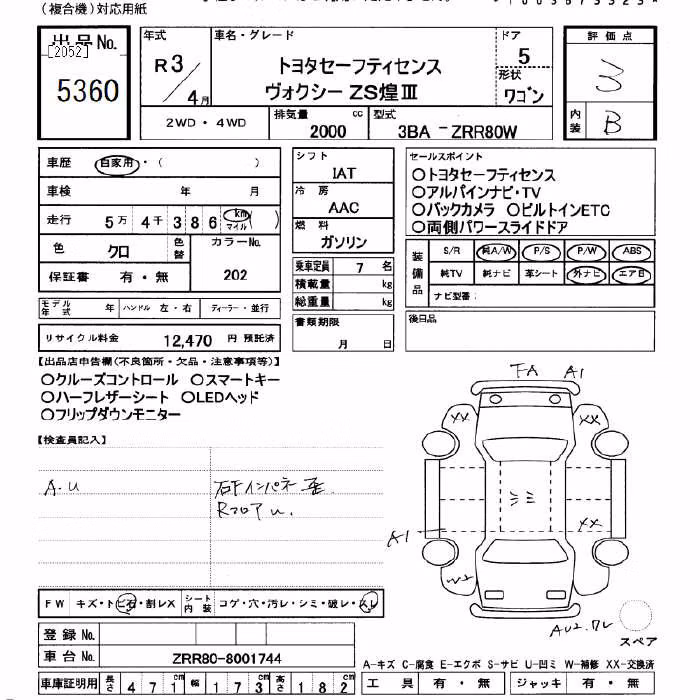 （複合機）対応用紙
出品No.
[2052]
5360
年式
R3/4月
車名・グレード
トヨタセーフティセンス
ヴォクシー ZS煌Ⅲ
ドア
5
形状
ワゴン
評価点
3
内装
B
2WD・4WD
排気量
2000 cc
型式
3BA - ZRR80W
車歴 自家用・（ ）
車検 年 月
走行 5万 4千 3 8 6 km マイル ( )
色 クロ
色替
カラーNo.
202
保証書 有・無
シフト
IAT
冷房
AAC
燃料
ガソリン
乗車定員 7 名
積載量 kg
総重量 kg
書類期限
月 日
セールスポイント
○トヨタセーフティセンス
○アルパインナビ・TV
○バックカメラ ○ビルトインETC
○両側パワースライドドア
装備品
S/R 純A/W P/S P/W ABS
純TV 純ナビ 革シート 外ナビ エアB
ナビ型番：
後日品
モデル年式 年 ハンドル 左・右 ディーラー・並行
リサイクル料金 12,470 円 預託済
【出品店申告欄(不良箇所・欠品・注意事項等)】
○クルーズコントロール ○スマートキー
○ハーフレザーシート ○LEDヘッド
○フリップダウンモニター
【検査員記入】
A.U
インパネ
RフロアU.
A1
XX XX
シミ
XX
A1
W2
AU2.
スペア
FW キズ・トビ石・割レX
シート内装 コゲ・穴・汚レ・シミ・破レ・スレ
登録No.
車台No. ZRR80-8001744
車庫証明用 長さ 4 7 1cm 幅 1 7 3cm 高さ 1 8 2cm
A-キズ C-腐食 E-エクボ S-サビ U-凹ミ W-補修 XX-交換済
工具 有・無 ジャッキ 有・無